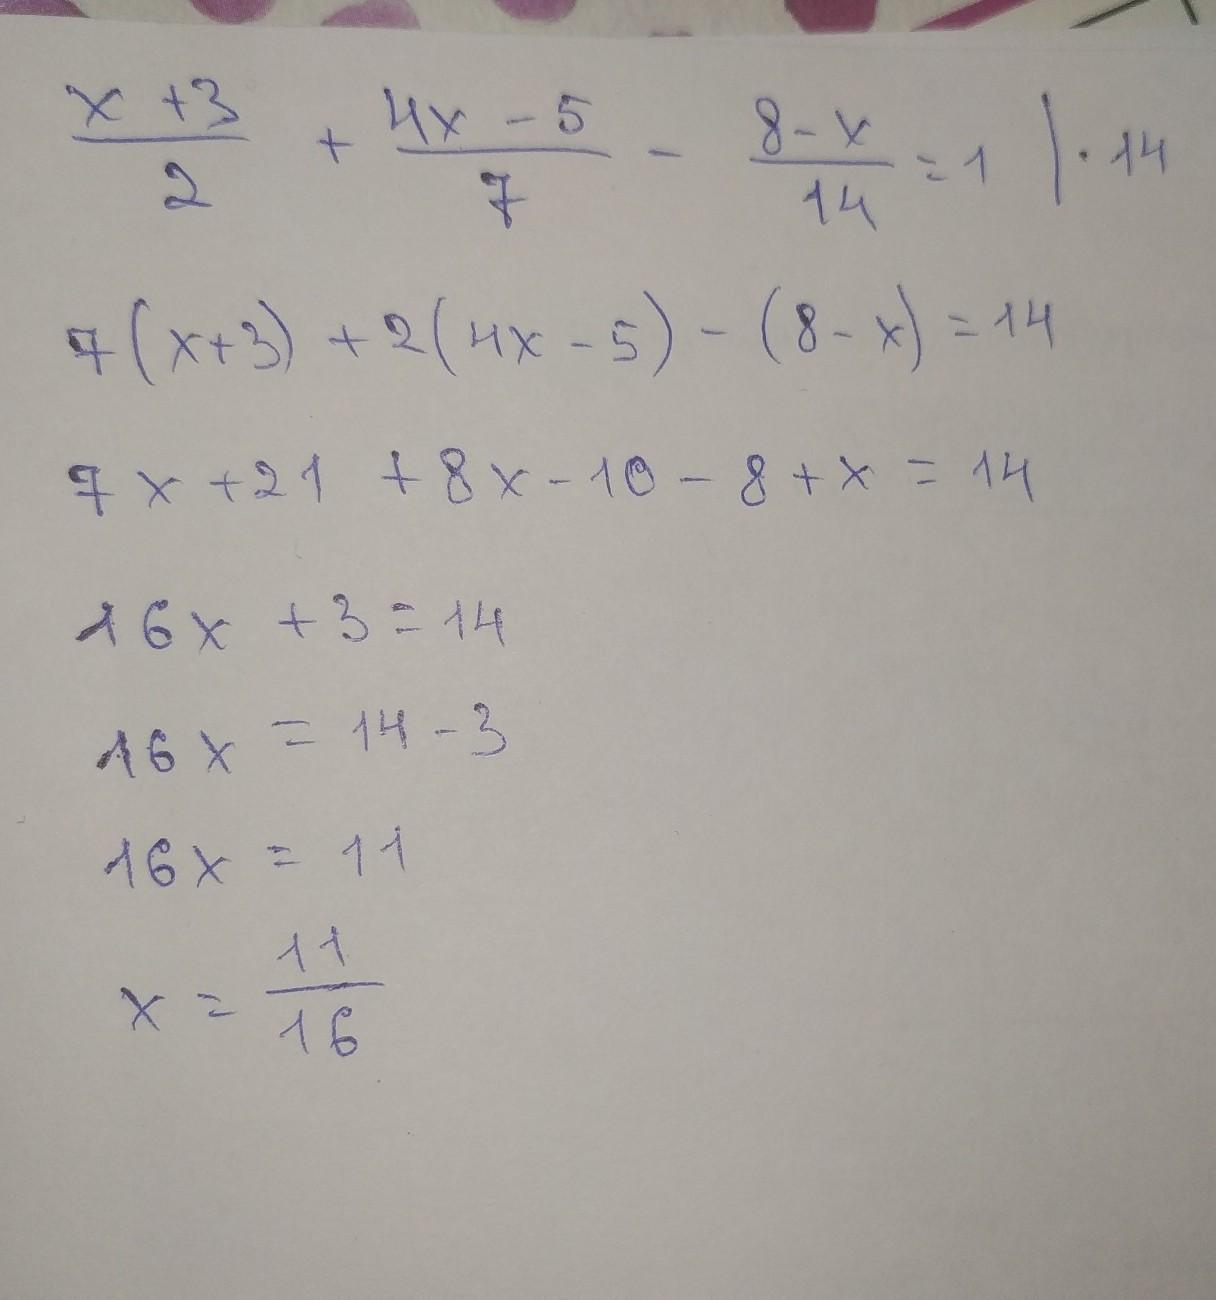 x+3/2 + 4x-5/7 - 8-x/14 = 1 | · 14
7(x+3) + 2(4x-5) - (8-x) = 14
7x+21 +8x-10-8+x = 14
16x +3 = 14
16x = 14-3
16x = 11
x = 11/16